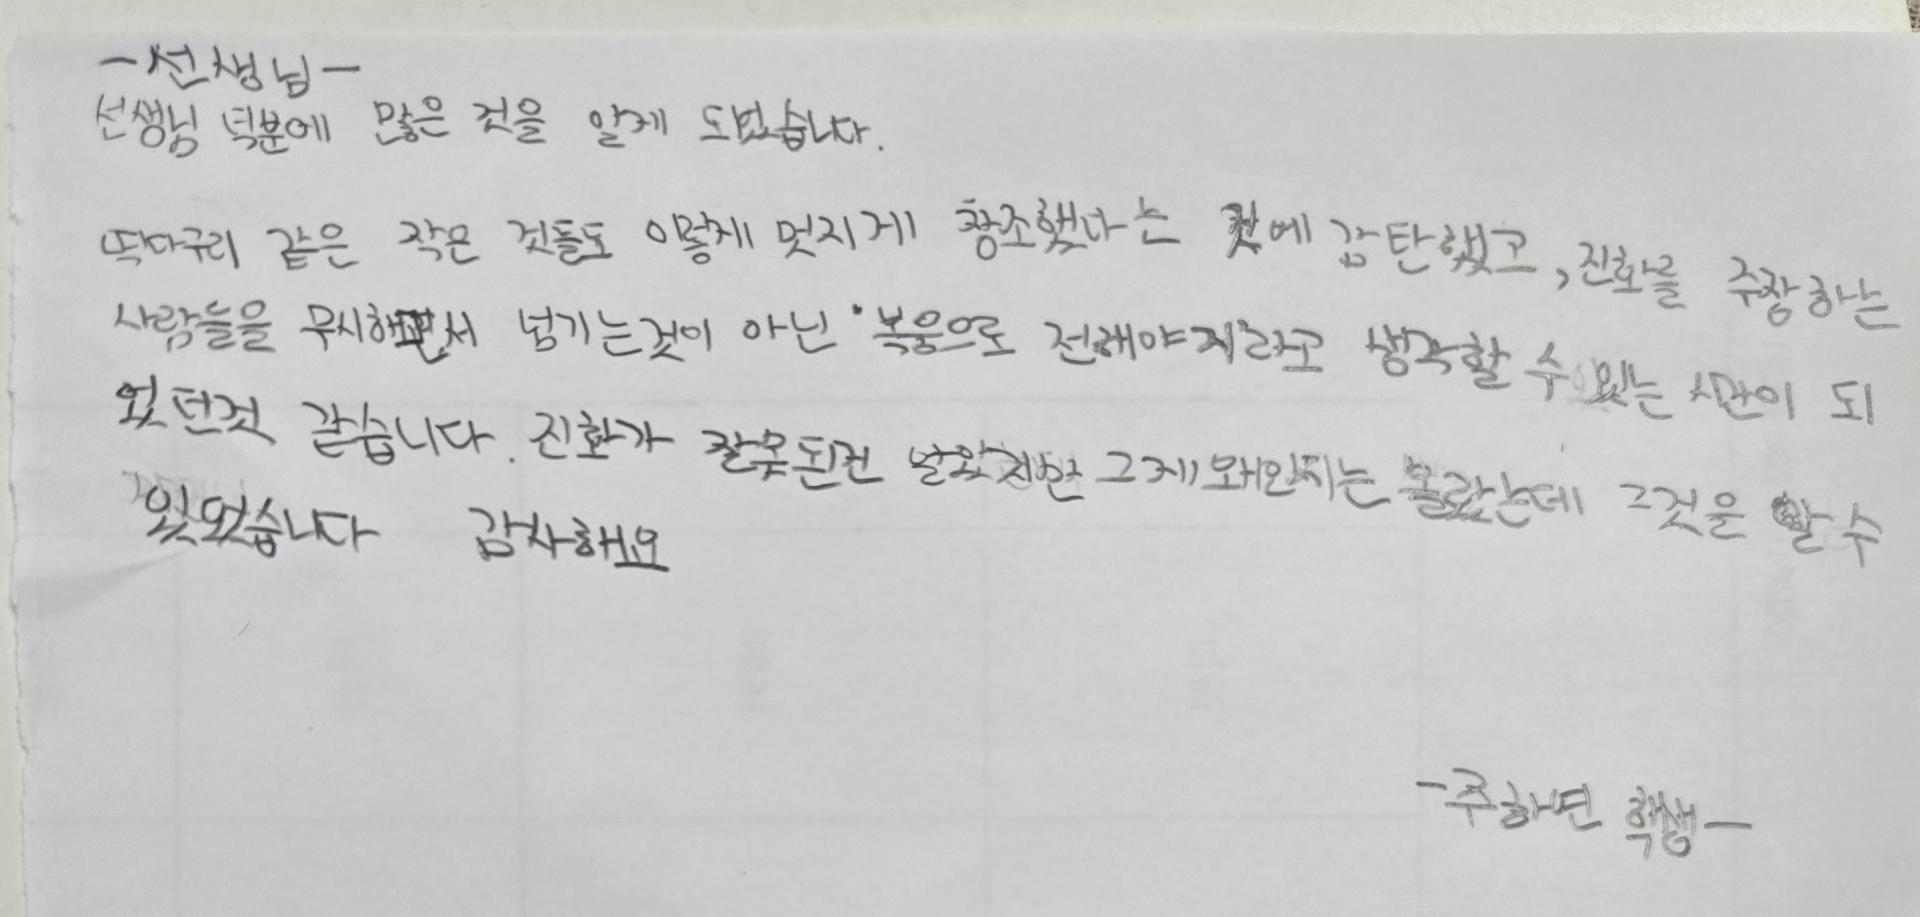 -선생님-
선생님 덕분에 많은 것을 알게 도었습니다.
딱다구리 같은 작은 것들도 이렇게 멋지게 창조했다는 것에 감탄했고, 진화를 주장하는
사람들을 무시하면서 넘기는것이 아닌 복음으로 전해야지라고 생각할 수 있는 시간이 되
었던것 같습니다. 진화가 잘못된건 알았지만 그게 왜인지는 몰랐는데 그것을 알 수
있었습니다 감사해요
-주하면 학생-